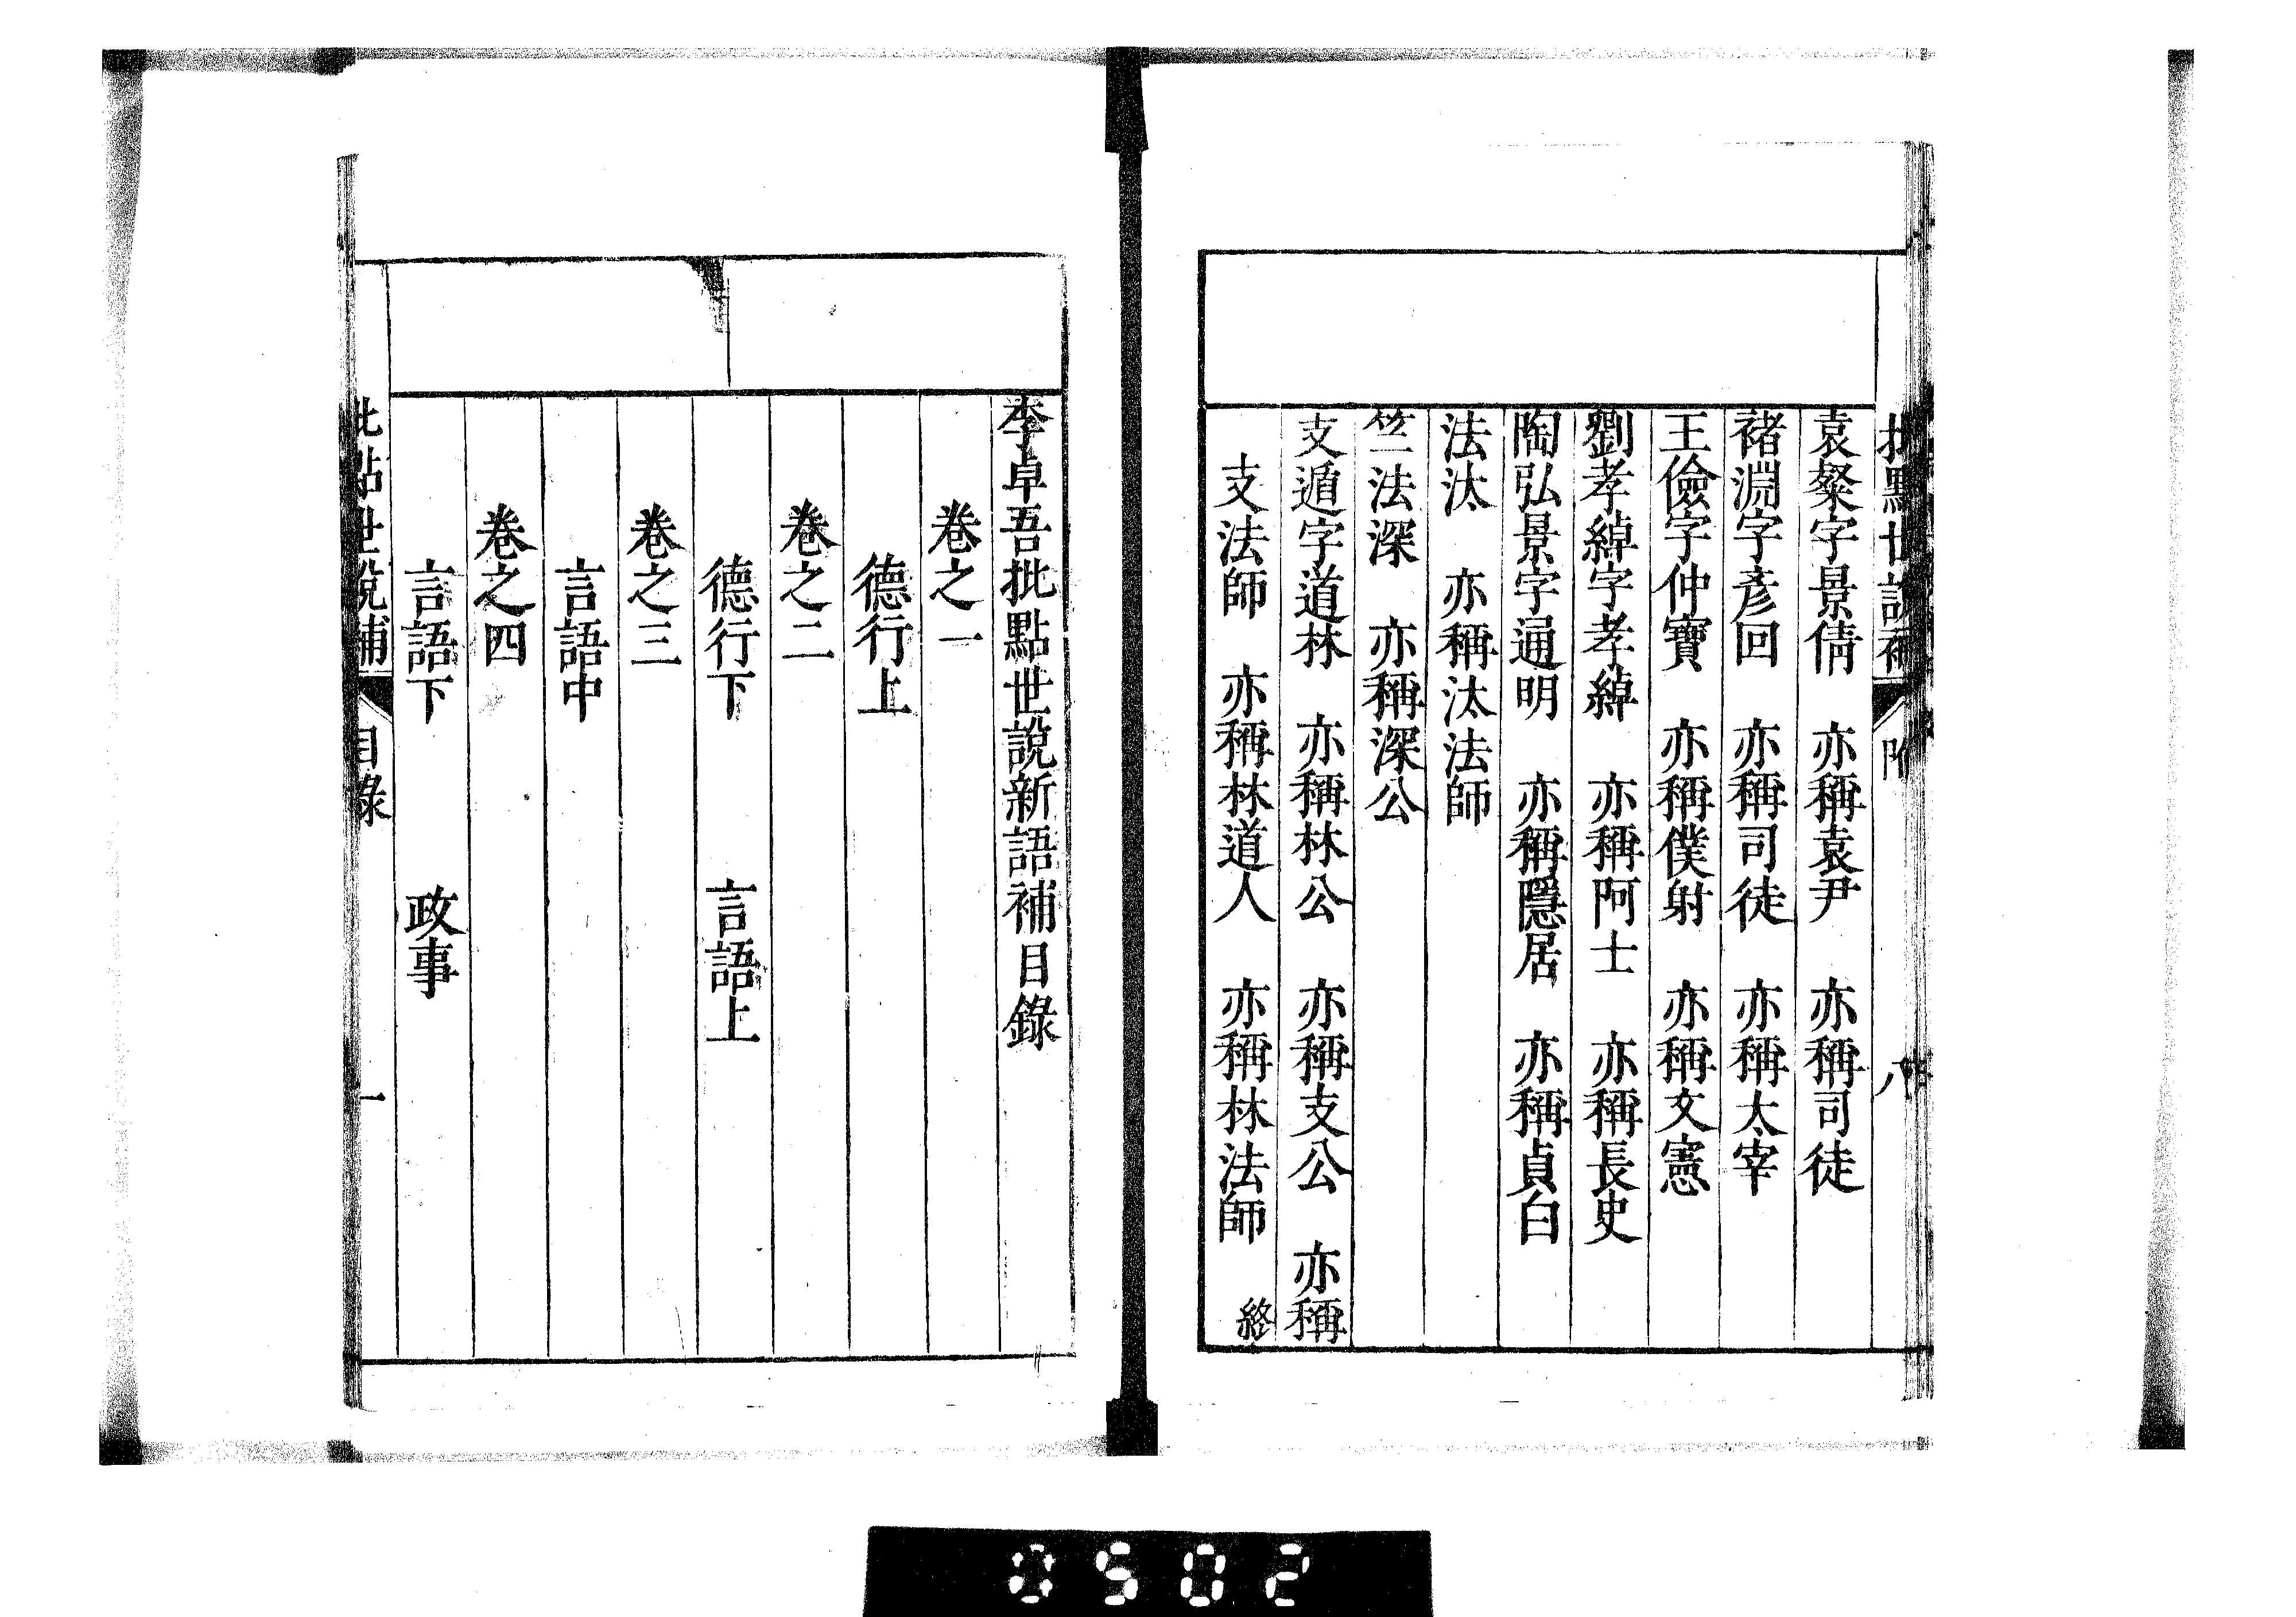 袁粲字景倩　亦稱袁尹　亦稱司徒
褚淵字彥回　亦稱司徒　亦稱太宰
王儉字仲寶　亦稱僕射　亦稱文憲
劉孝綽字孝綽　亦稱阿士　亦稱長史
陶弘景字通明　亦稱隱居　亦稱貞白
法汰　亦稱汰法師
竺法深　亦稱深公
支遁字道林　亦稱林公　亦稱支公　亦稱
支法師　亦稱林道人　亦稱林法師　終
李卓吾批點世說新語補目錄
卷之一
德行上
卷之二
德行下　言語上
卷之三
言語中
卷之四
言語下　政事
批點世說補　目錄　一
0502